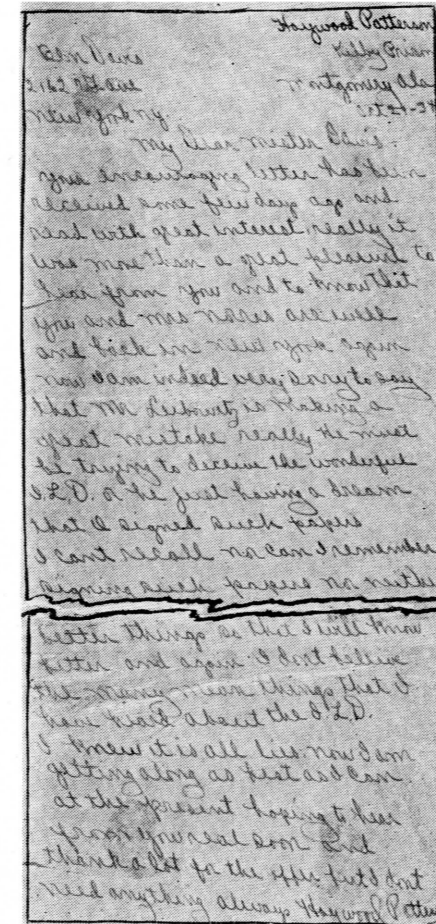 Haywood Patterson
Kilby Prison
Montgomery Ala
Oct 21-34
Ben Davis
2162 7th ave
New york ny.
my Dear mister Davis.
your encouraging letter has been
received some few days ago and
read with great interest really it
was more than a great pleasure to
hear from you and to know that
you and mrs are well
and back in new york again
now I am indeed very sorry to say
that Mr Leibowitz is making a
great mistake really he must
be trying to deceive the wonderful
I.L.D. or he just having a dream
that I signed such papers
I cant recall nor can I remember
signing such papers nor neither
better things so that I will know
better and again I dont believe
the many mean things that I
have heard about the I.L.D.
I knew it is all lies. now I am
getting along as best as I can
at the present hoping to hear
from you real soon and
thanks a lot for the offer but I dont
need anything always Haywood Patter